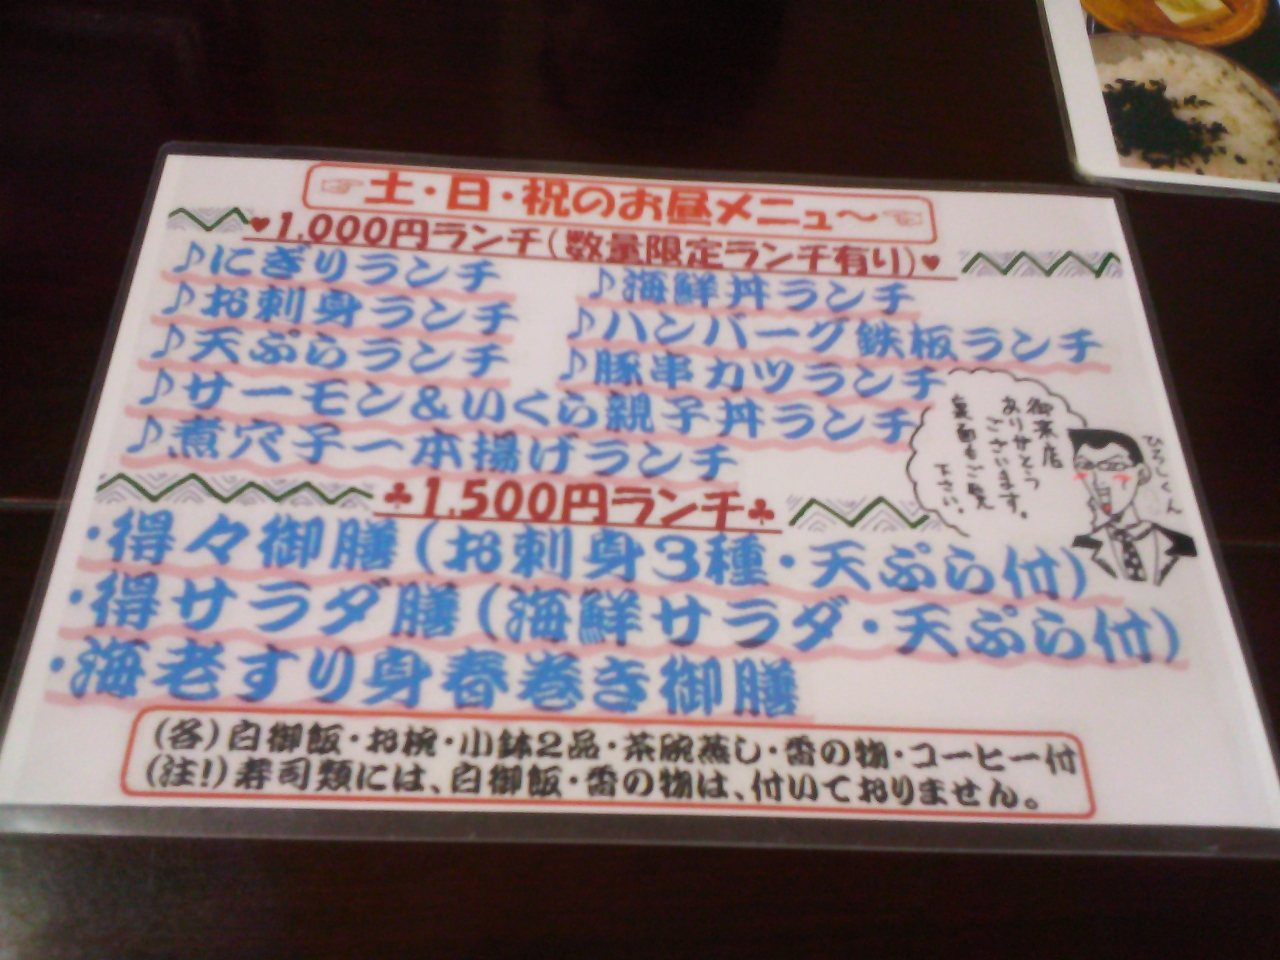 ☞土・日・祝のお昼メニュ〜☜
♥1,000円ランチ(数量限定ランチ有り)♥
♪にぎりランチ
♪海鮮丼ランチ
♪お刺身ランチ
♪ハンバーグ鉄板ランチ
♪天ぷらランチ
♪豚串カツランチ
♪サーモン&いくら親子丼ランチ
♪煮穴子一本揚げランチ
御来店
ありがとう
ございます。
裏面もご覧
下さい。
ひろしくん
♣1,500円ランチ♣
・得々御膳(お刺身3種・天ぷら付)
・得サラダ膳(海鮮サラダ・天ぷら付)
・海老すり身春巻き御膳
(各)白御飯・お椀・小鉢2品・茶碗蒸し・香の物・コーヒー付
(注!)寿司類には、白御飯・香の物は、付いておりません。